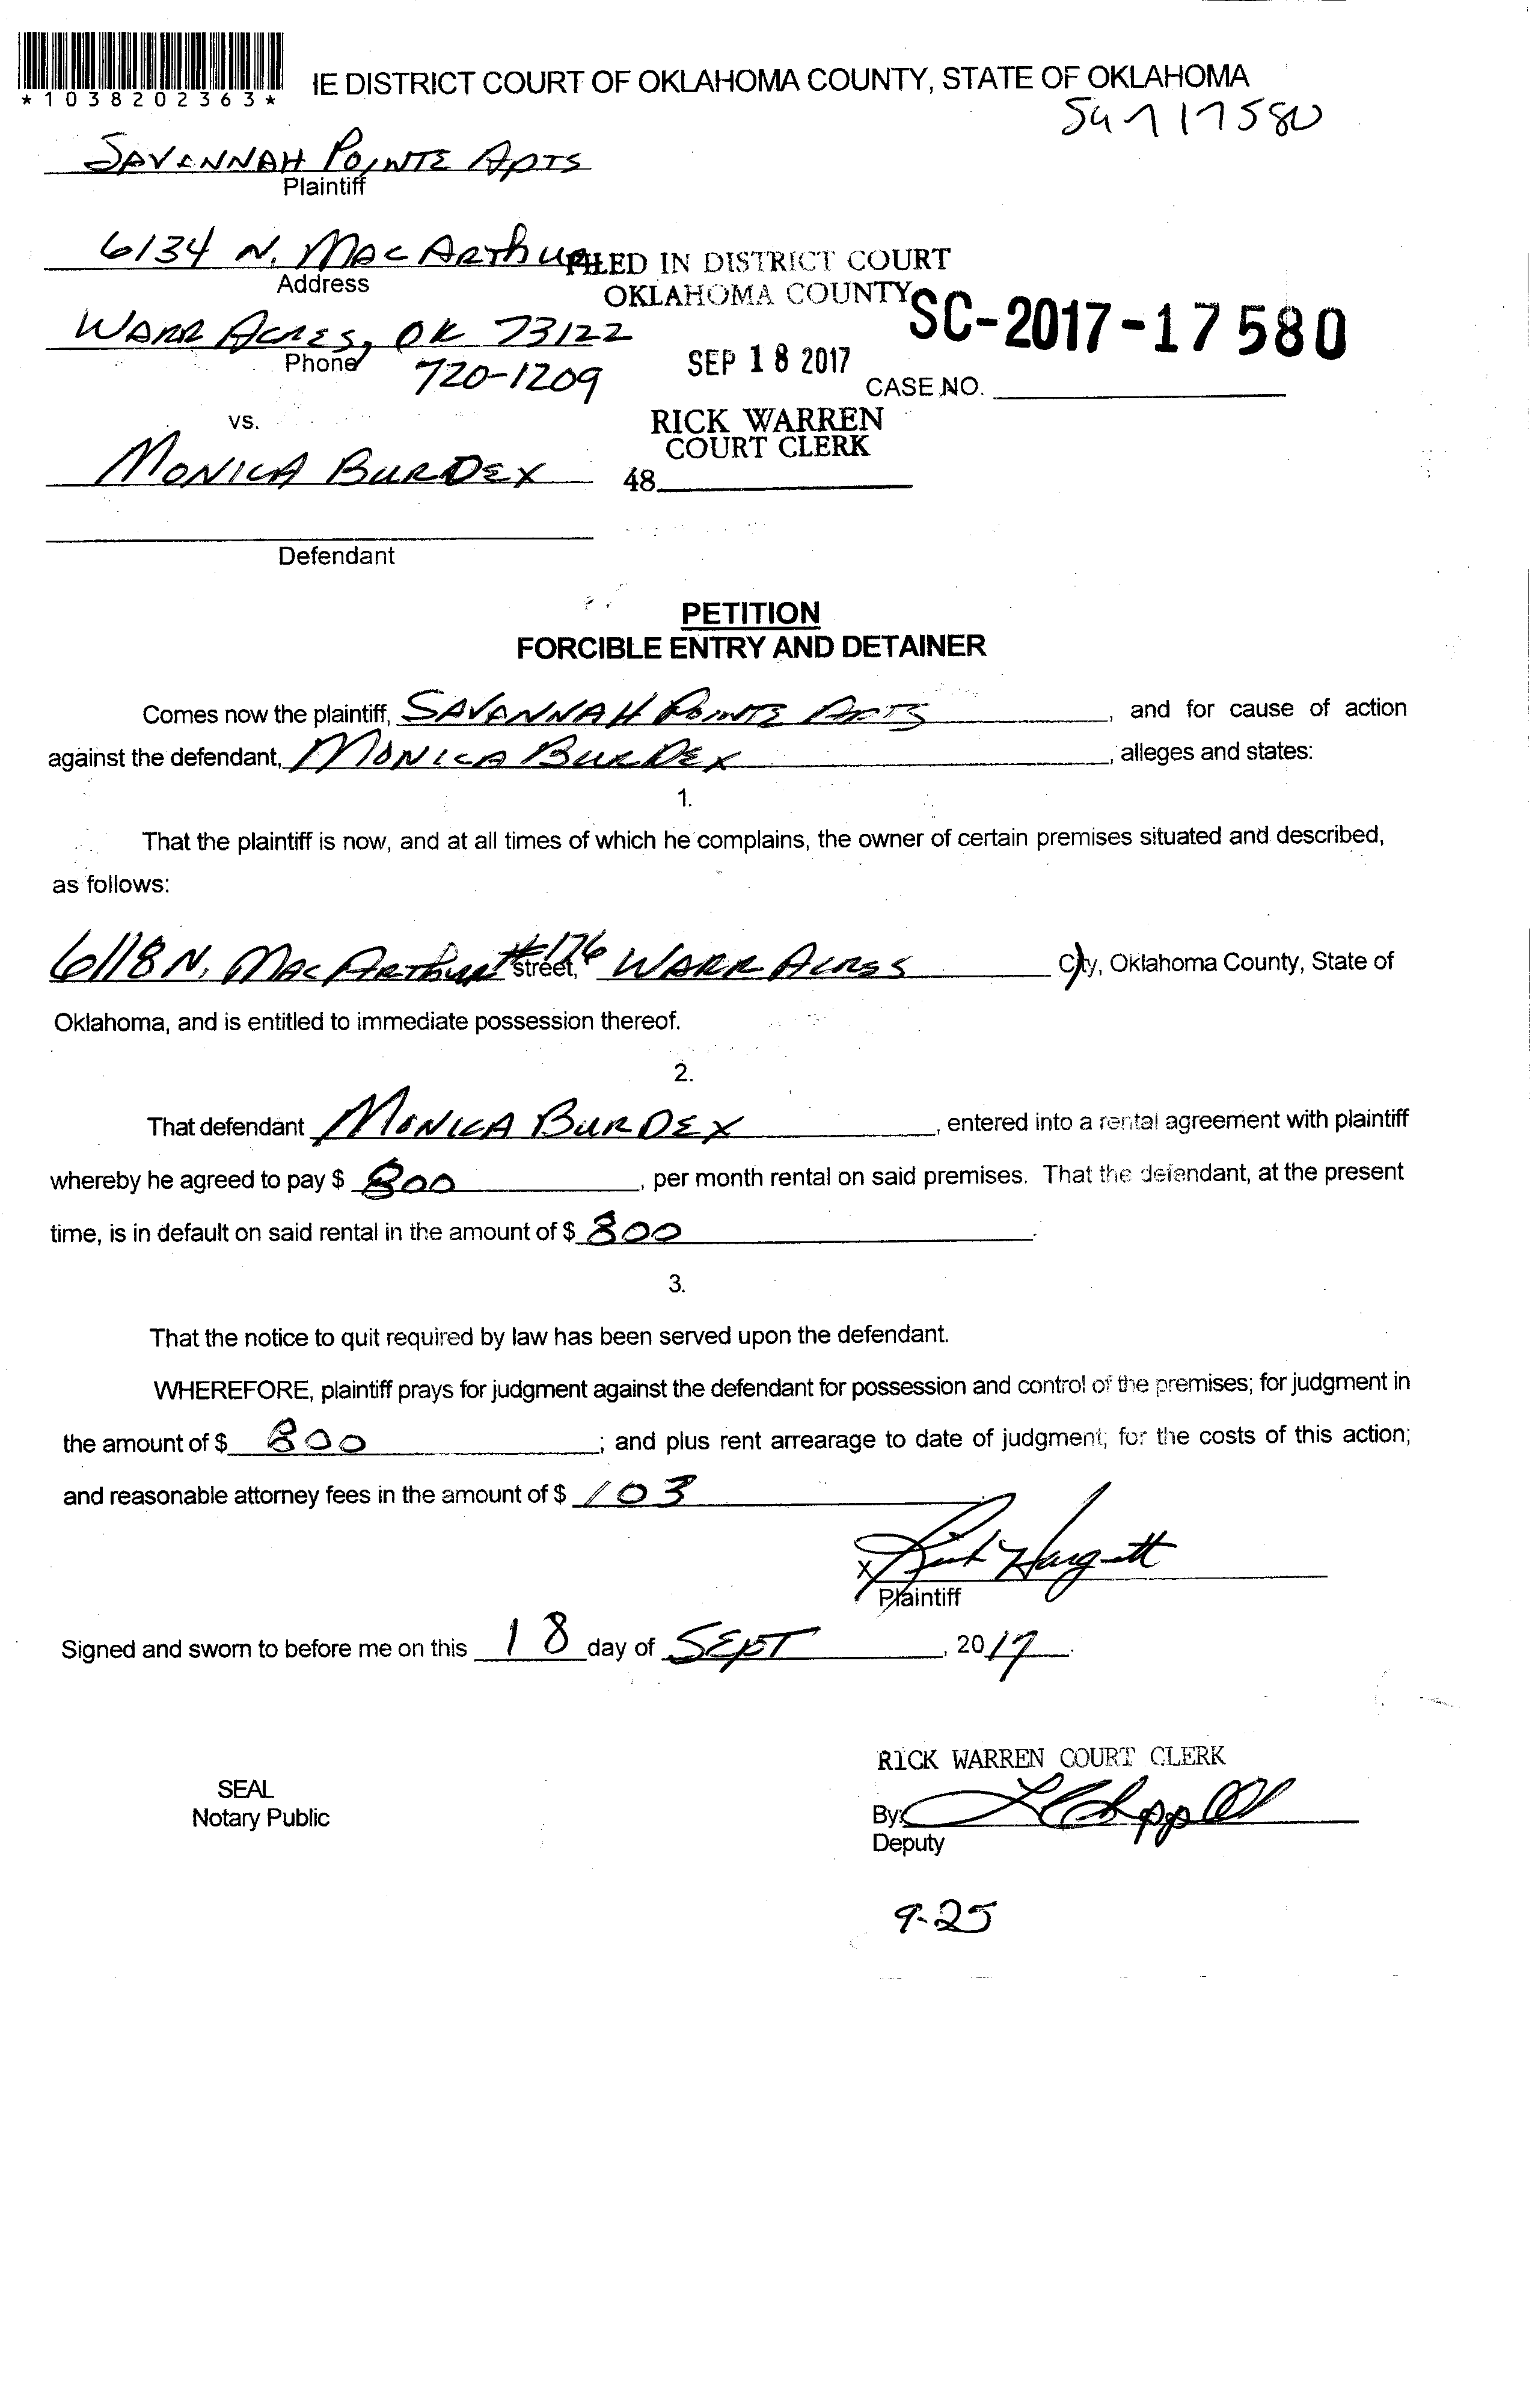 *1038202363*
IE DISTRICT COURT OF OKLAHOMA COUNTY, STATE OF OKLAHOMA
17580
SAVANNAH POINTE APTS
Plaintiff
6134 N. MACARTHUR
FILED IN DISTRICT COURT
Address
OKLAHOMA COUNTY
SC-2017-17580
WARR ACRES, OK 73122
Phone
720-1209
SEP 18 2017
CASE NO.
vs.
RICK WARREN
COURT CLERK
MONICA BURDEX
48
Defendant
PETITION
FORCIBLE ENTRY AND DETAINER
Comes now the plaintiff, SAVANNAH POINTE APTS, and for cause of action
against the defendant, MONICA BURDEX, alleges and states:
1.
That the plaintiff is now, and at all times of which he complains, the owner of certain premises situated and described,
as follows:
6118 N. MACARTHUR #176 street, WARR ACRES City, Oklahoma County, State of
Oklahoma, and is entitled to immediate possession thereof.
2.
That defendant MONICA BURDEX, entered into a rental agreement with plaintiff
whereby he agreed to pay $ 800, per month rental on said premises. That the defendant, at the present
time, is in default on said rental in the amount of $ 800.
3.
That the notice to quit required by law has been served upon the defendant.
WHEREFORE, plaintiff prays for judgment against the defendant for possession and control of the premises; for judgment in
the amount of $ 800; and plus rent arrearage to date of judgment; for the costs of this action;
and reasonable attorney fees in the amount of $ 103
X
Plaintiff
Signed and sworn to before me on this 18 day of SEPT, 2017.
RICK WARREN COURT CLERK
SEAL
Notary Public
By:
Deputy
9-25